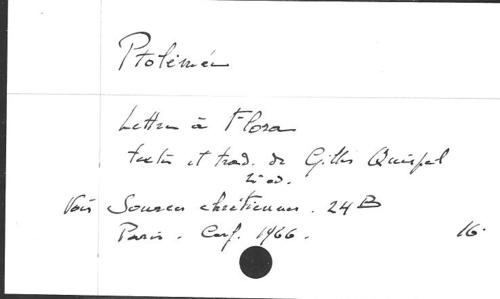 Ptolémée
Lettre à Flora
texte et trad. de Gilles Quispel
2è ed.
Voir Sources chrétiennes. 24 B
Paris. Cerf. 1966.
16.